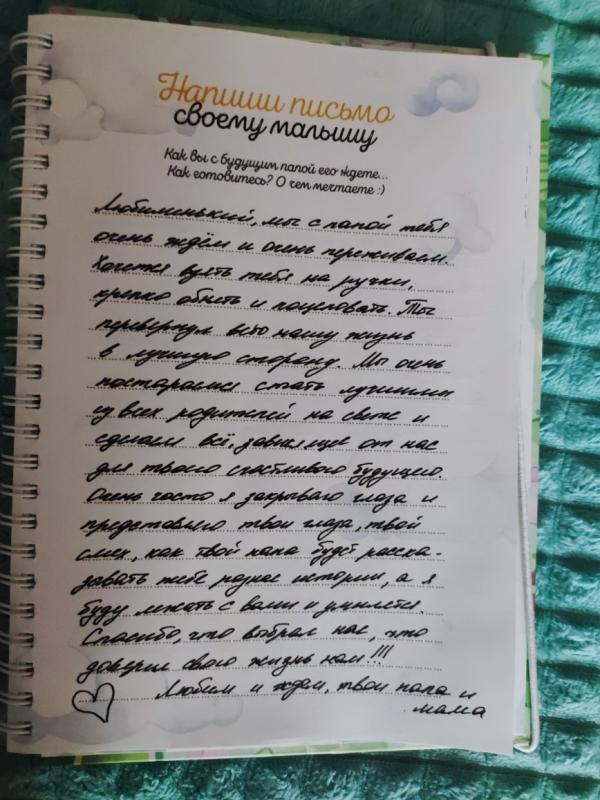 Напиши письмо
своему малышу
Как вы с будущим папой его ждете...
Как готовитесь? О чем мечтаете :)
Любименький, мы с папой тебя
очень ждём и очень переживаем.
Хочется взять тебя на ручки,
крепко обнять и поцеловать. Ты
перевернул всю нашу жизнь
в лучшую сторону. Мы очень
постараемся стать лучшими
из всех родителей на свете и
сделаем всё, зависящее от нас
для твоего счастливого будущего.
Очень часто я закрываю глаза и
представляю твои глаза, твой
смех, как твой папа будет расска-
зывать тебе разные истории, а я
буду лежать с вами и умиляться.
Спасибо, что выбрал нас, что
доверил свою жизнь нам!!!
Любим и ждем, твои папа и
мама